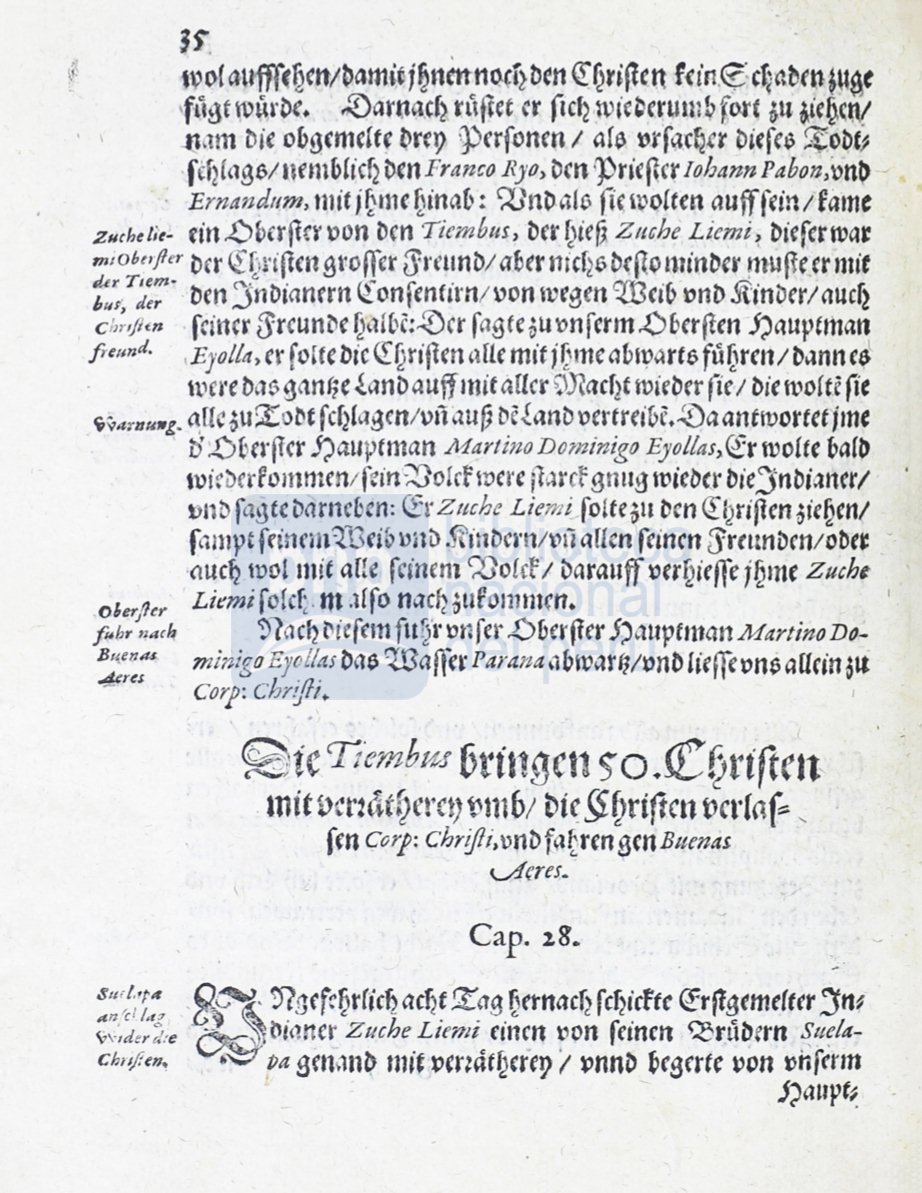 35
wol auffsehen/damit jhnen noch den Christen kein Schaden zuge
fügt würde. Darnach rüstet er sich wiederumb fort zu ziehen/
nam die obgemelte drey Personen / als vrsacher dieses Todt-
schlags/ nemblich den Franco Ryo, den Priester Iohann Pabon, vnd
Ernandum, mit jhme hinab: Vnd als sie wolten auff sein / kame
Zuche lie-
mi Oberster
der Tiem-
bus, der
Christen
freund.
ein Oberster von den Tiembus, der hieß Zuche Liemi, dieser war
der Christen grosser Freund/ aber nichs desto minder muste er mit
den Indianern Consentirn/ von wegen Weib vnd Kinder/ auch
seiner Freunde halbē: Der sagte zu vnserm Obersten Hauptman
Eyolla, er solte die Christen alle mit jhme abwarts führen / dann es
were das gantze Land auff mit aller Macht wieder sie / die woltē sie
Warnung.
alle zu Todt schlagen/ vñ auß dē Land vertreibē. Da antwortet jme
d' Oberster Hauptman Martino Dominigo Eyollas, Er wolte bald
wiederkommen/ sein Volck were starck gnug wieder die Indianer/
vnd sagte darneben: Er Zuche Liemi solte zu den Christen ziehen/
sampt seinem Weib vnd Kindern/ vñ allen seinen Freunden/ oder
auch wol mit alle seinem Volck / darauff verhiesse jhme Zuche
Liemi solch m also nachzukommen.
Oberster
fuhr nach
Buenas
Aeres
Nach diesem fuhr vnser Oberster Hauptman Martino Do-
minigo Eyollas das Wasser Parana abwartz/ vnd liesse vns allein zu
Corp: Christi.
Die Tiembus bringen 50. Christen
mit verrätherey vmb/ die Christen verlas-
sen Corp: Christi, vnd fahren gen Buenas
Aeres.
Cap. 28.
Suelapa
anschlag
Wider die
Christen.
VNgefehrlich acht Tag hernach schickte Erstgemelter In-
dianer Zuche Liemi einen von seinen Brüdern Suela-
pa genand mit verrätherey / vnnd begerte von vnserm
Haupt-
biblioteca
nacional
del perú